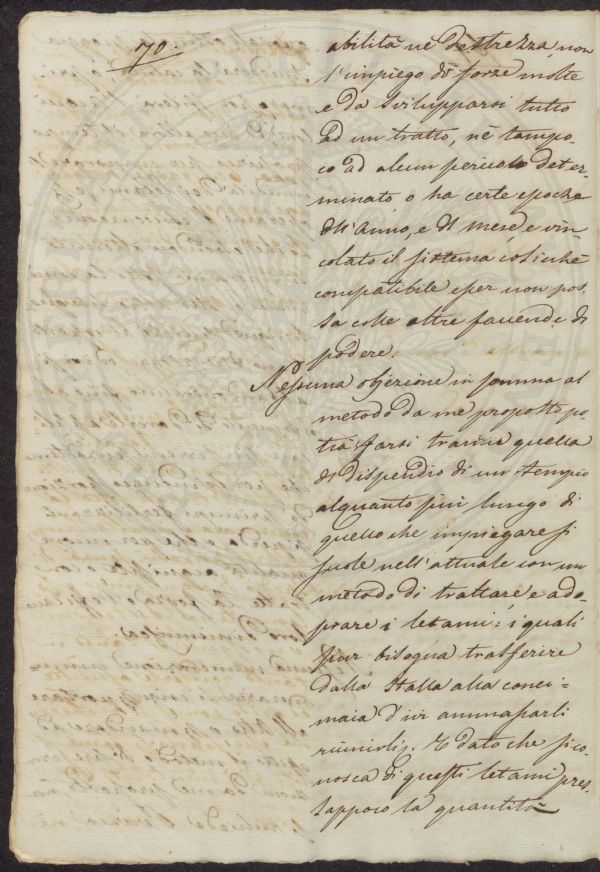 70.
abilità nè destrezza, non
l'impiego di forze molte
e da svilupparsi tutto
ad un tratto, nè tampo-
co ad alcun pericolo deter-
minato o ha certe epoche
dell'anno, e di mese, e vin-
colato il sistema cosicchè
compatibile esser non pos-
sa colle altre faccende di
podere.
Nessuna objezione in somma al
metodo da me proposto po-
trà farsi tranne quella
di dispendio di un tempo
alquanto più lungo di
quello che impiegare si
suole nell'attuale con un
metodo di trattare e ado-
prare i letami: i quali
pur bisogna trasferire
dalla stalla alla conci-
maia d'ivi ammassarli
riunirli. E dato che si co-
nosca di questi letami pres-
sappoco la quantità